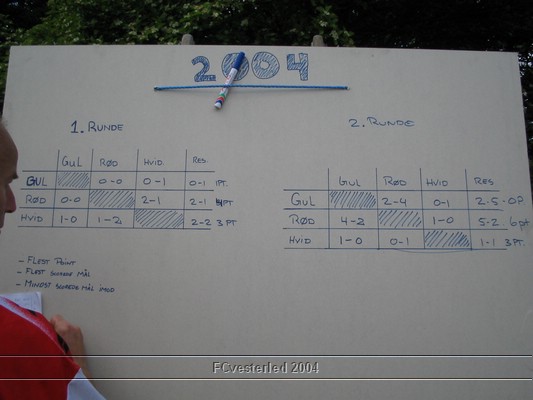 2004
1. RUNDE
GUL RØD HVID. RES.
GUL 0-0 0-1 0-1 1PT.
RØD 0-0 2-1 2-1 4PT
HVID 1-0 1-2 2-2 3PT
- FLEST POINT
- FLEST SCOREDE MÅL
- MINDST SCOREDE MÅL IMOD
2. RUNDE
GUL RØD HVID RES.
GUL 2-4 0-1 2-5 · 0P.
RØD 4-2 1-0 5-2 6pt
HVID 1-0 0-1 1-1 3PT.
FCvesterled 2004